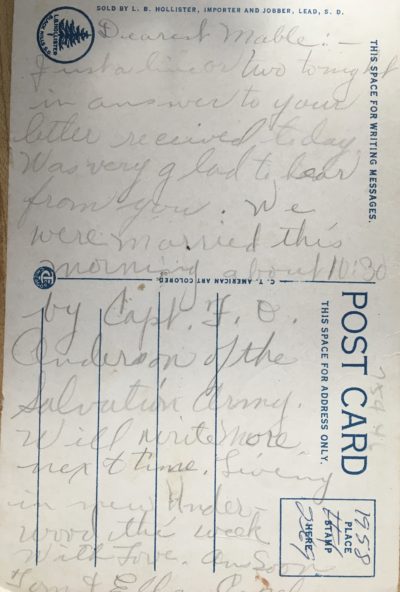 SOLD BY L. B. HOLLISTER, IMPORTER AND JOBBER, LEAD, S. D.
Dearest Mable:-
Just a line or two tonight
in answer to your
letter received today.
Was very glad to hear
from you. We
were married this
morning about 10:30
by Capt. F. O.
Anderson of the
Salvation Army.
Will write more
next time. Living
in new Under-
wood this week
With Love. Ans Soon
THIS SPACE FOR WRITING MESSAGES.
C. T. AMERICAN ART COLORED.
POST CARD
THIS SPACE FOR ADDRESS ONLY.
PLACE
STAMP
HERE
1958